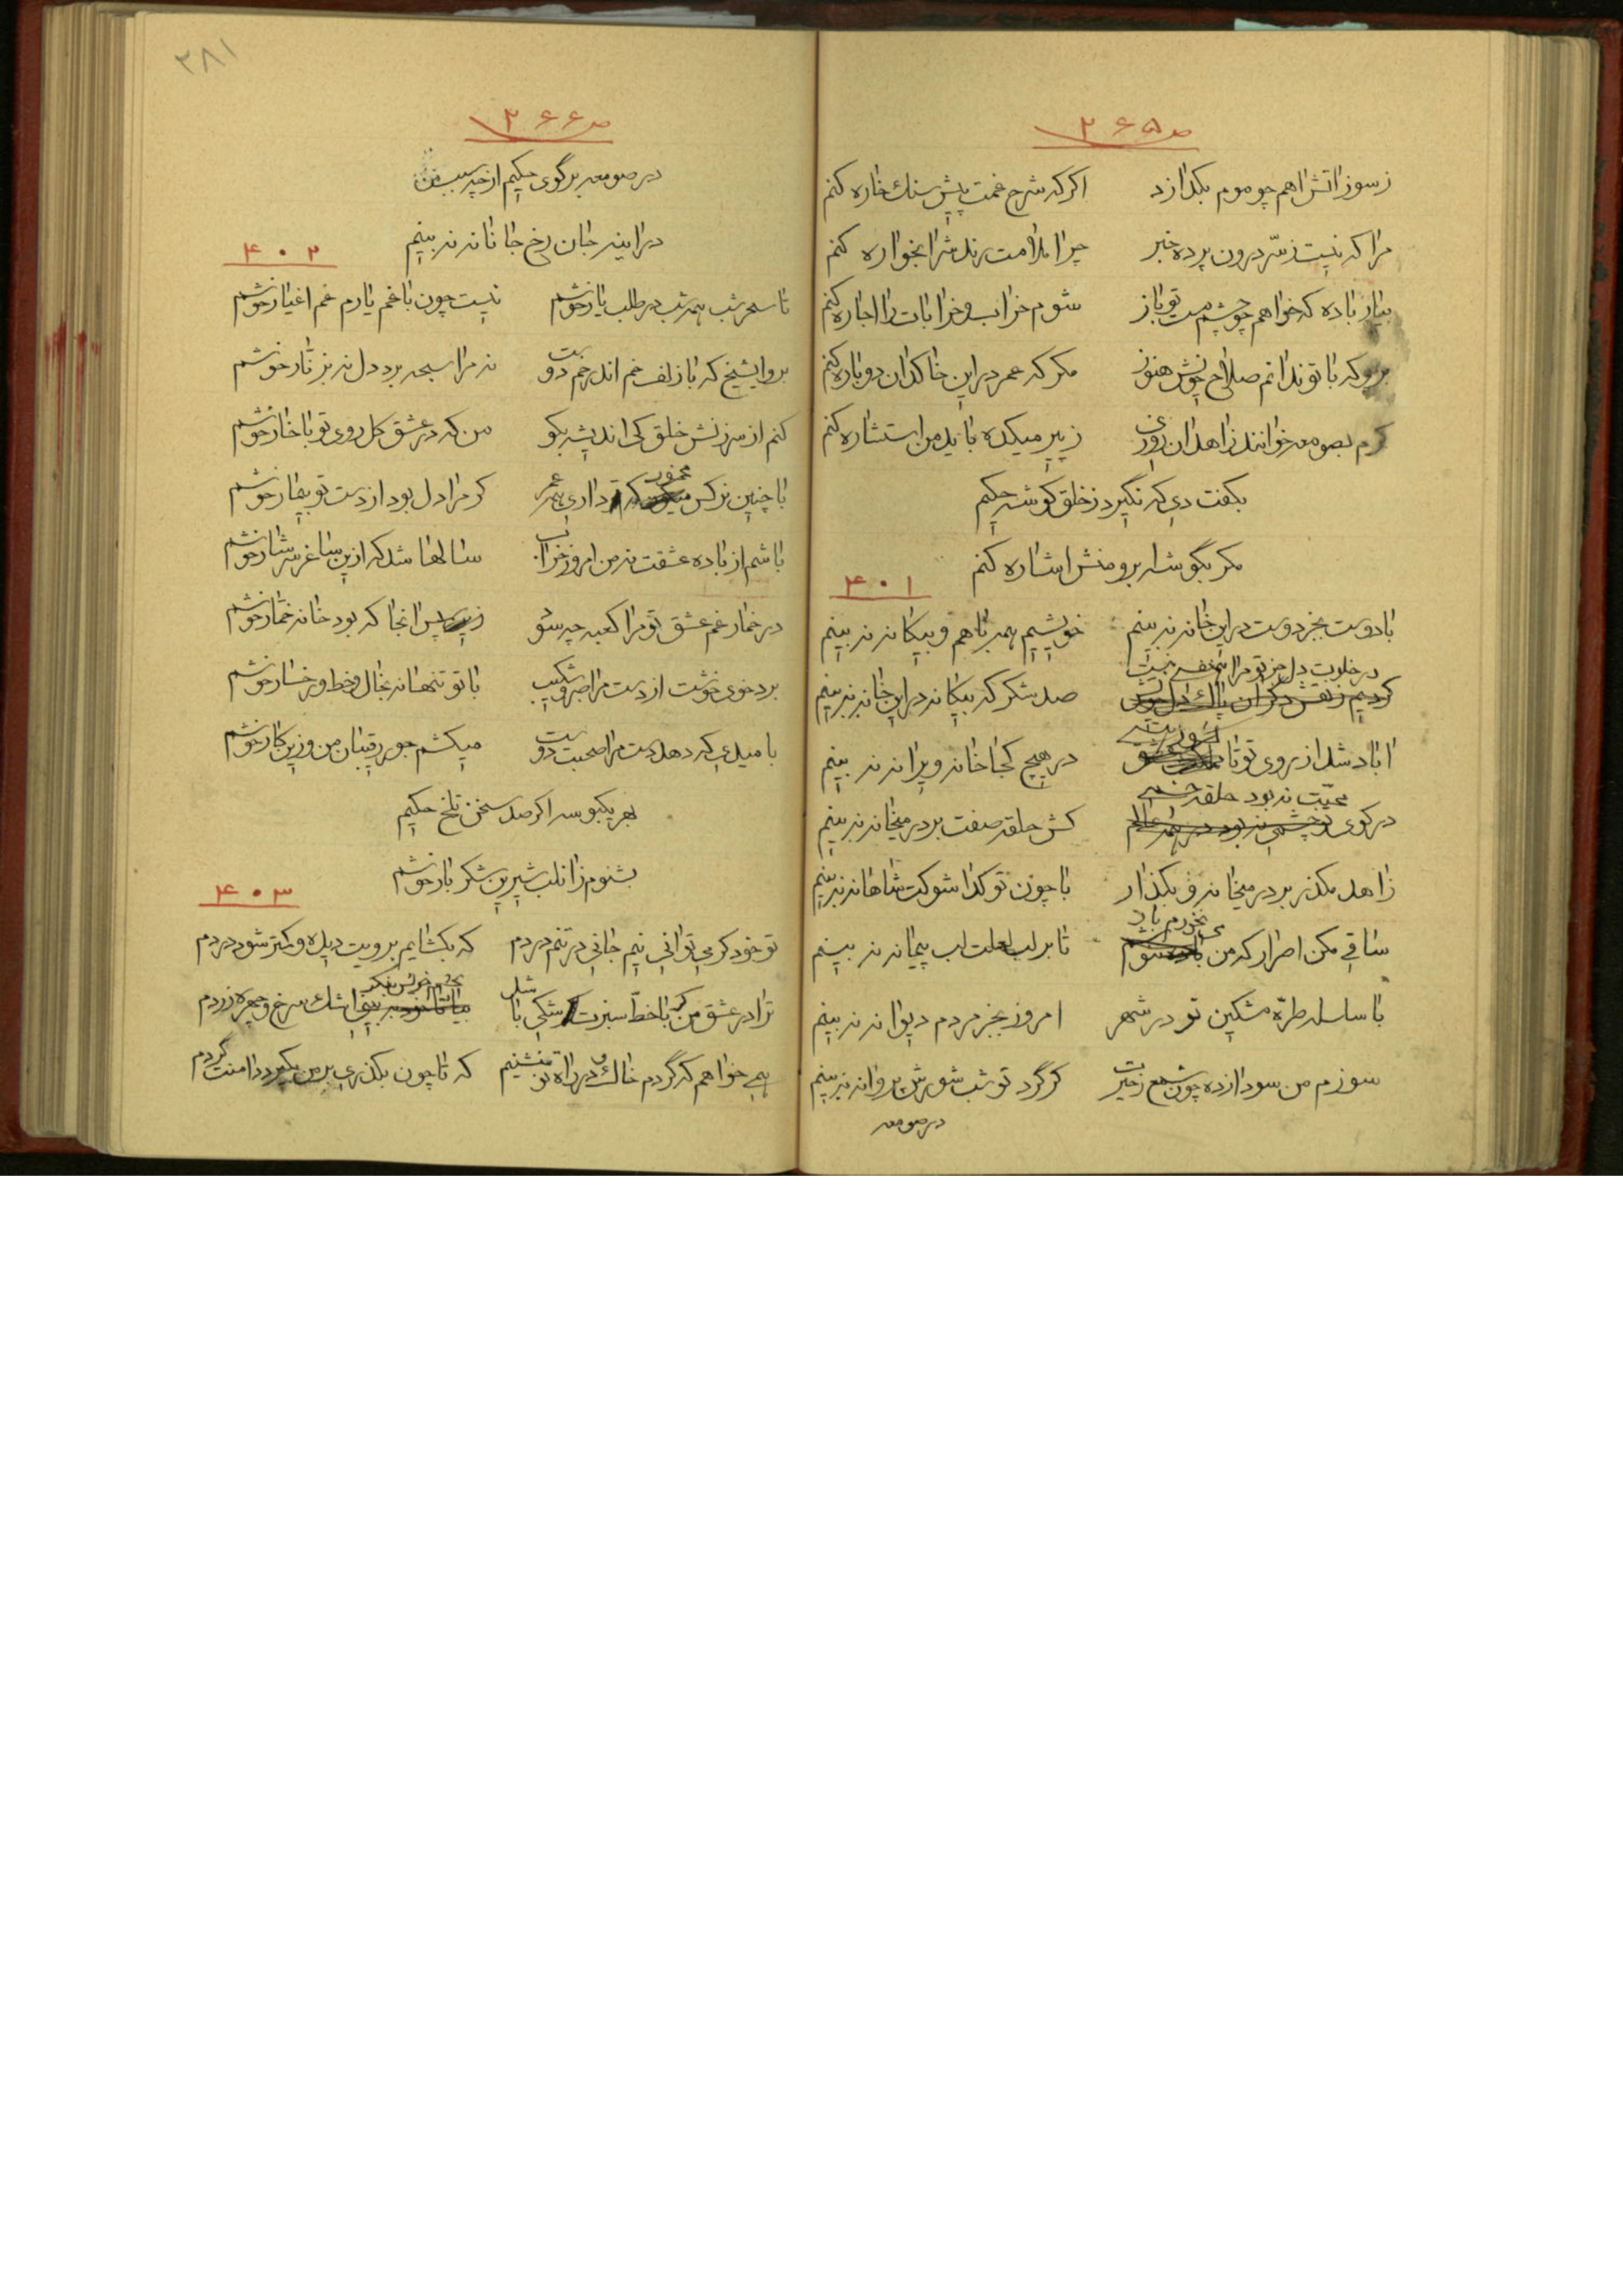 ۳۸۱
ص ۲۶۵
ز سوز اتش اهم چو موم بکدازد اکر که شرح غمت پیش سنك خاره کنم
مرا که نیست ز سرّ درون پرده خبر چرا ملامت رند شرابخواره کنم
بیار باده که خواهم چو چشم مست تو باز شوم خراب و خرابات را اجاره کنم
برو که با تو ندانم صلاح خویش هنوز مکر که عمر در این خاکدان دوباره کنم
کرم بصومعه خوانند زاهدان روزی ز پیر میکده باید من استشاره کنم
بکفت دی که نکیرد ز خلق کوشه حکیم
مکر بکوشه ابرو منش اشاره کنم
۴۰۱
با دوست بجز دوست در این خانه نه بینم خویشیم همه با هم و بیکانه نه بینم
در خلوت دل جز تو مرا هم نفسی نیست
کردیم ز نقش دکران پاك دل صد شکر که بیکانه در این خانه نه بینم
کشور
اباد شد از روی تو تا در هیچ کجا خانه ویرانه نه بینم
محبّت نه بود حلقه
در کوی کش حلقه صفت بر در میخانه نه بینم
زاهد مکذر بر در میخانه و بکذار با چون تو کدا شوکت شاهانه نه بینم
نخورم باده
ساقی مکن اصرار که من تا بر لب لعلت لب پیمانه نه بینم
با سلسله طرّه مشکین تو در شهر امروز بجز مردم دیوانه نه بینم
سوزم من سودازده چون شمع ز غیرت کر کرد تو شب شورش پروانه نه بینم
در صومعه
ص ۲۶۶
در صومعه بر کوی حکیم از چه سبب من
در اینه جان رخ جانانه نه بینم
۴۰۲
تا سحر شب همه شب در طلب یار خوشم نیست چون با غم یارم غم اغیار خوشم
برو ایشیخ که با زلف خم اندر خم دوست نه مرا سبحه برد دل نه بزنّار خوشم
کنم از سرزنش خلق کی اندیشه بکو من که در عشق کل روی تو با خار خوشم
مخمور
با چنین نرکس که تو داری همه عمر کر مرا دل بود از دست تو بیمار خوشم
باشم از باده عشقت نه من امروز خراب سالها شد که از این ساغر سرشار خوشم
در خمار غم عشق تو مرا کعبه چه سود زین سپس انجا که بود خانه خمّار خوشم
برد خوی خوشت از دست مرا صبر و شکیب با تو تنها نه بخال و خط و رخسار خوشم
با میدی که دهد دست مرا صحبت دوست میکشم جور رقیبان من و زین کار خوشم
بهر یکبوسه اکر صد سخن تلخ حکیم
بشنوم زان لب شیرین شکر بار خوشم
۴۰۳
تو خود کر می توانی نیم جانی در تنم دردم که بکشایم برویت دیده و کمتر شود دردم
بچشم خویش بنکر
ترا در عشق من کر با خطّ سبزت شکی باشد اشك سرخ و چهره زردم
همی خواهم که گردم خاك و در راه تو بنشینم که تا چون بکذری بر من بکیرد دامنت گردم